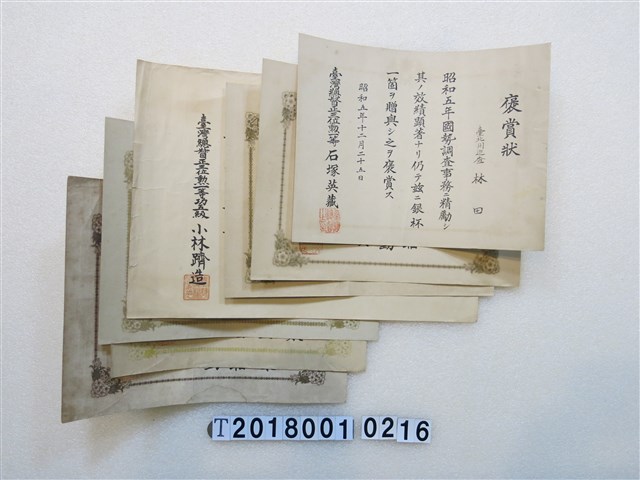 褒賞狀
臺北州巡査 林田
昭和五年國勢調査事務ニ精勵シ
其ノ效績顯著ナリ仍テ玆ニ銀杯
一箇ヲ贈與シ之ヲ褒賞ス
昭和五年十二月二十五日
臺灣總督正三位勲一等石塚英藏
臺灣總督正三位勲一等功五級 小林躋造
T2018001 0216